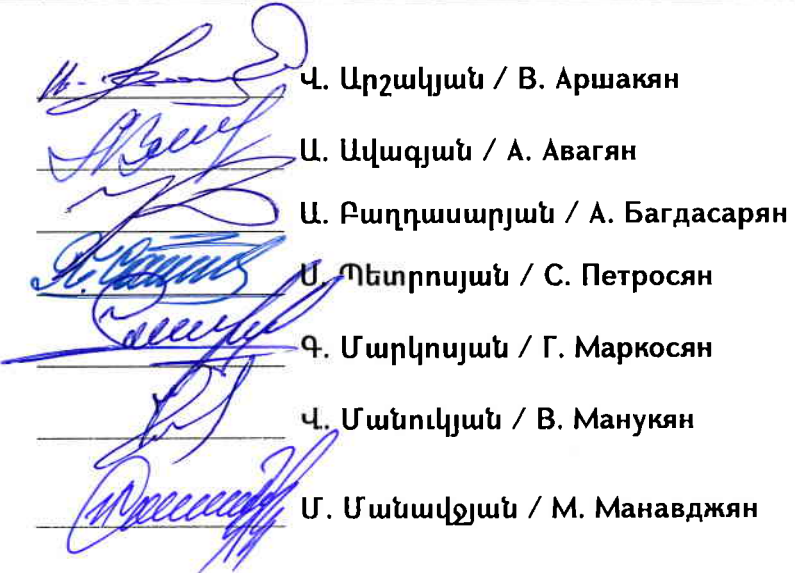 Վ. Արշակյան / В. Аршакян
Ա. Ավագյան / А. Авагян
Ա. Բաղդասարյան / А. Багдасарян
Ս. Պետրոսյան / С. Петросян
Գ. Մարկոսյան / Г. Маркосян
Վ. Մանուկյան / В. Манукян
Մ. Մանավջյան / М. Манавджян